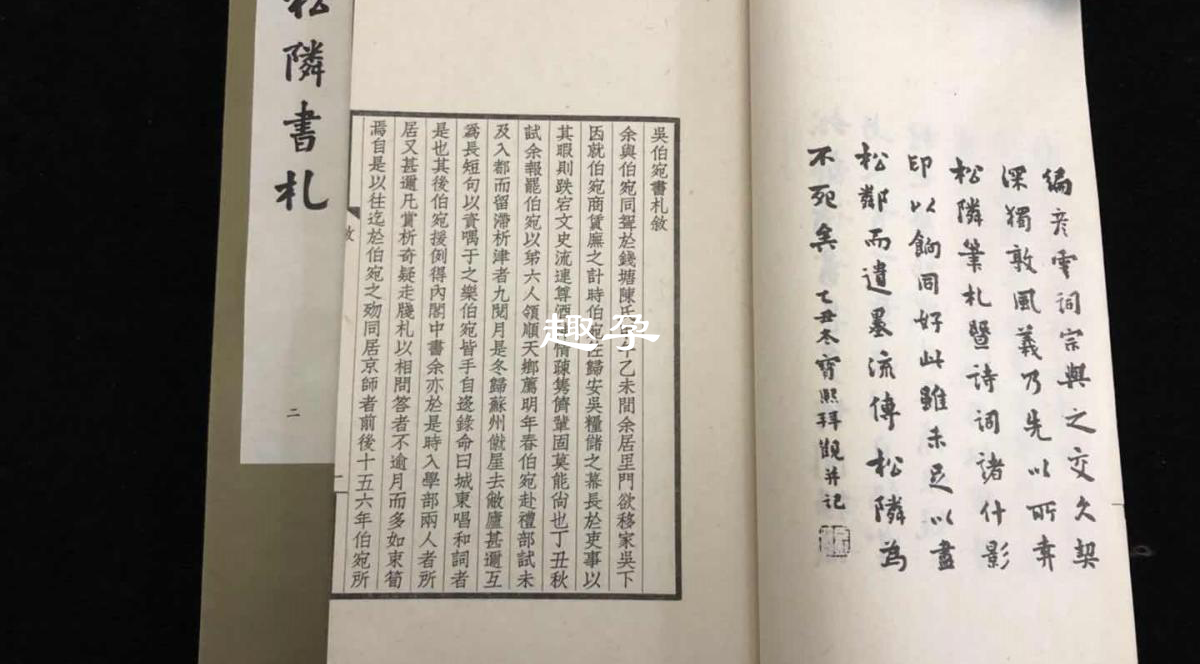 彦雲詞宗與之交久契
深獨敦風義乃先以所弆
松隣筆札暨詩詞諸什影
印以餉同好此雖未足以盡
松鄰而遺墨流傳松隣為
不死矣 乙丑冬寶熙拜觀并記
吳伯宛書札敘
余與伯宛同聟於錢塘陳氏乙未間余居里門欲移家吳下
因就伯宛商賃廡之計時伯宛佐歸安吳糧儲之幕長於吏事以
其暇則跌宕文史流連尊酒情疎雋儕輩固莫能尙也丁丑秋
試余報罷伯宛以弟六人領順天鄉薦明年春伯宛赴禮部試未
及入都而留滯析津者九閱月是冬歸蘇州僦屋去敝廬甚邇互
爲長短句以資喁于之樂伯宛皆手自迻錄命曰城東唱和詞者
是也其後伯宛援例得內閣中書余亦於是時入學部兩人者所
居又甚邇凡賞析奇疑走牋札以相問答者不逾月而多如束筍
焉自是以往迄於伯宛之歾同居京師者前後十五六年伯宛所
敘
一
松隣書札
二
趣孕